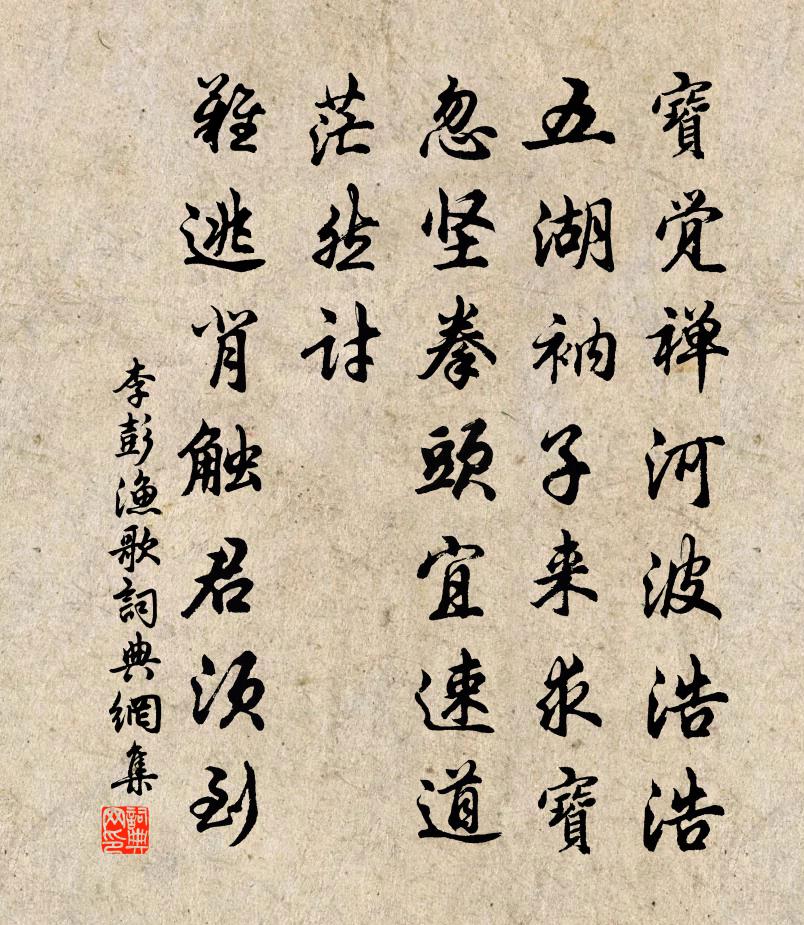 寶觉禅河波浩浩
五湖衲子来求寶
忽坚拳頭宜速道
茫然讨
難逃背触君须到
李彭渔歌詞典網集
詞典网印